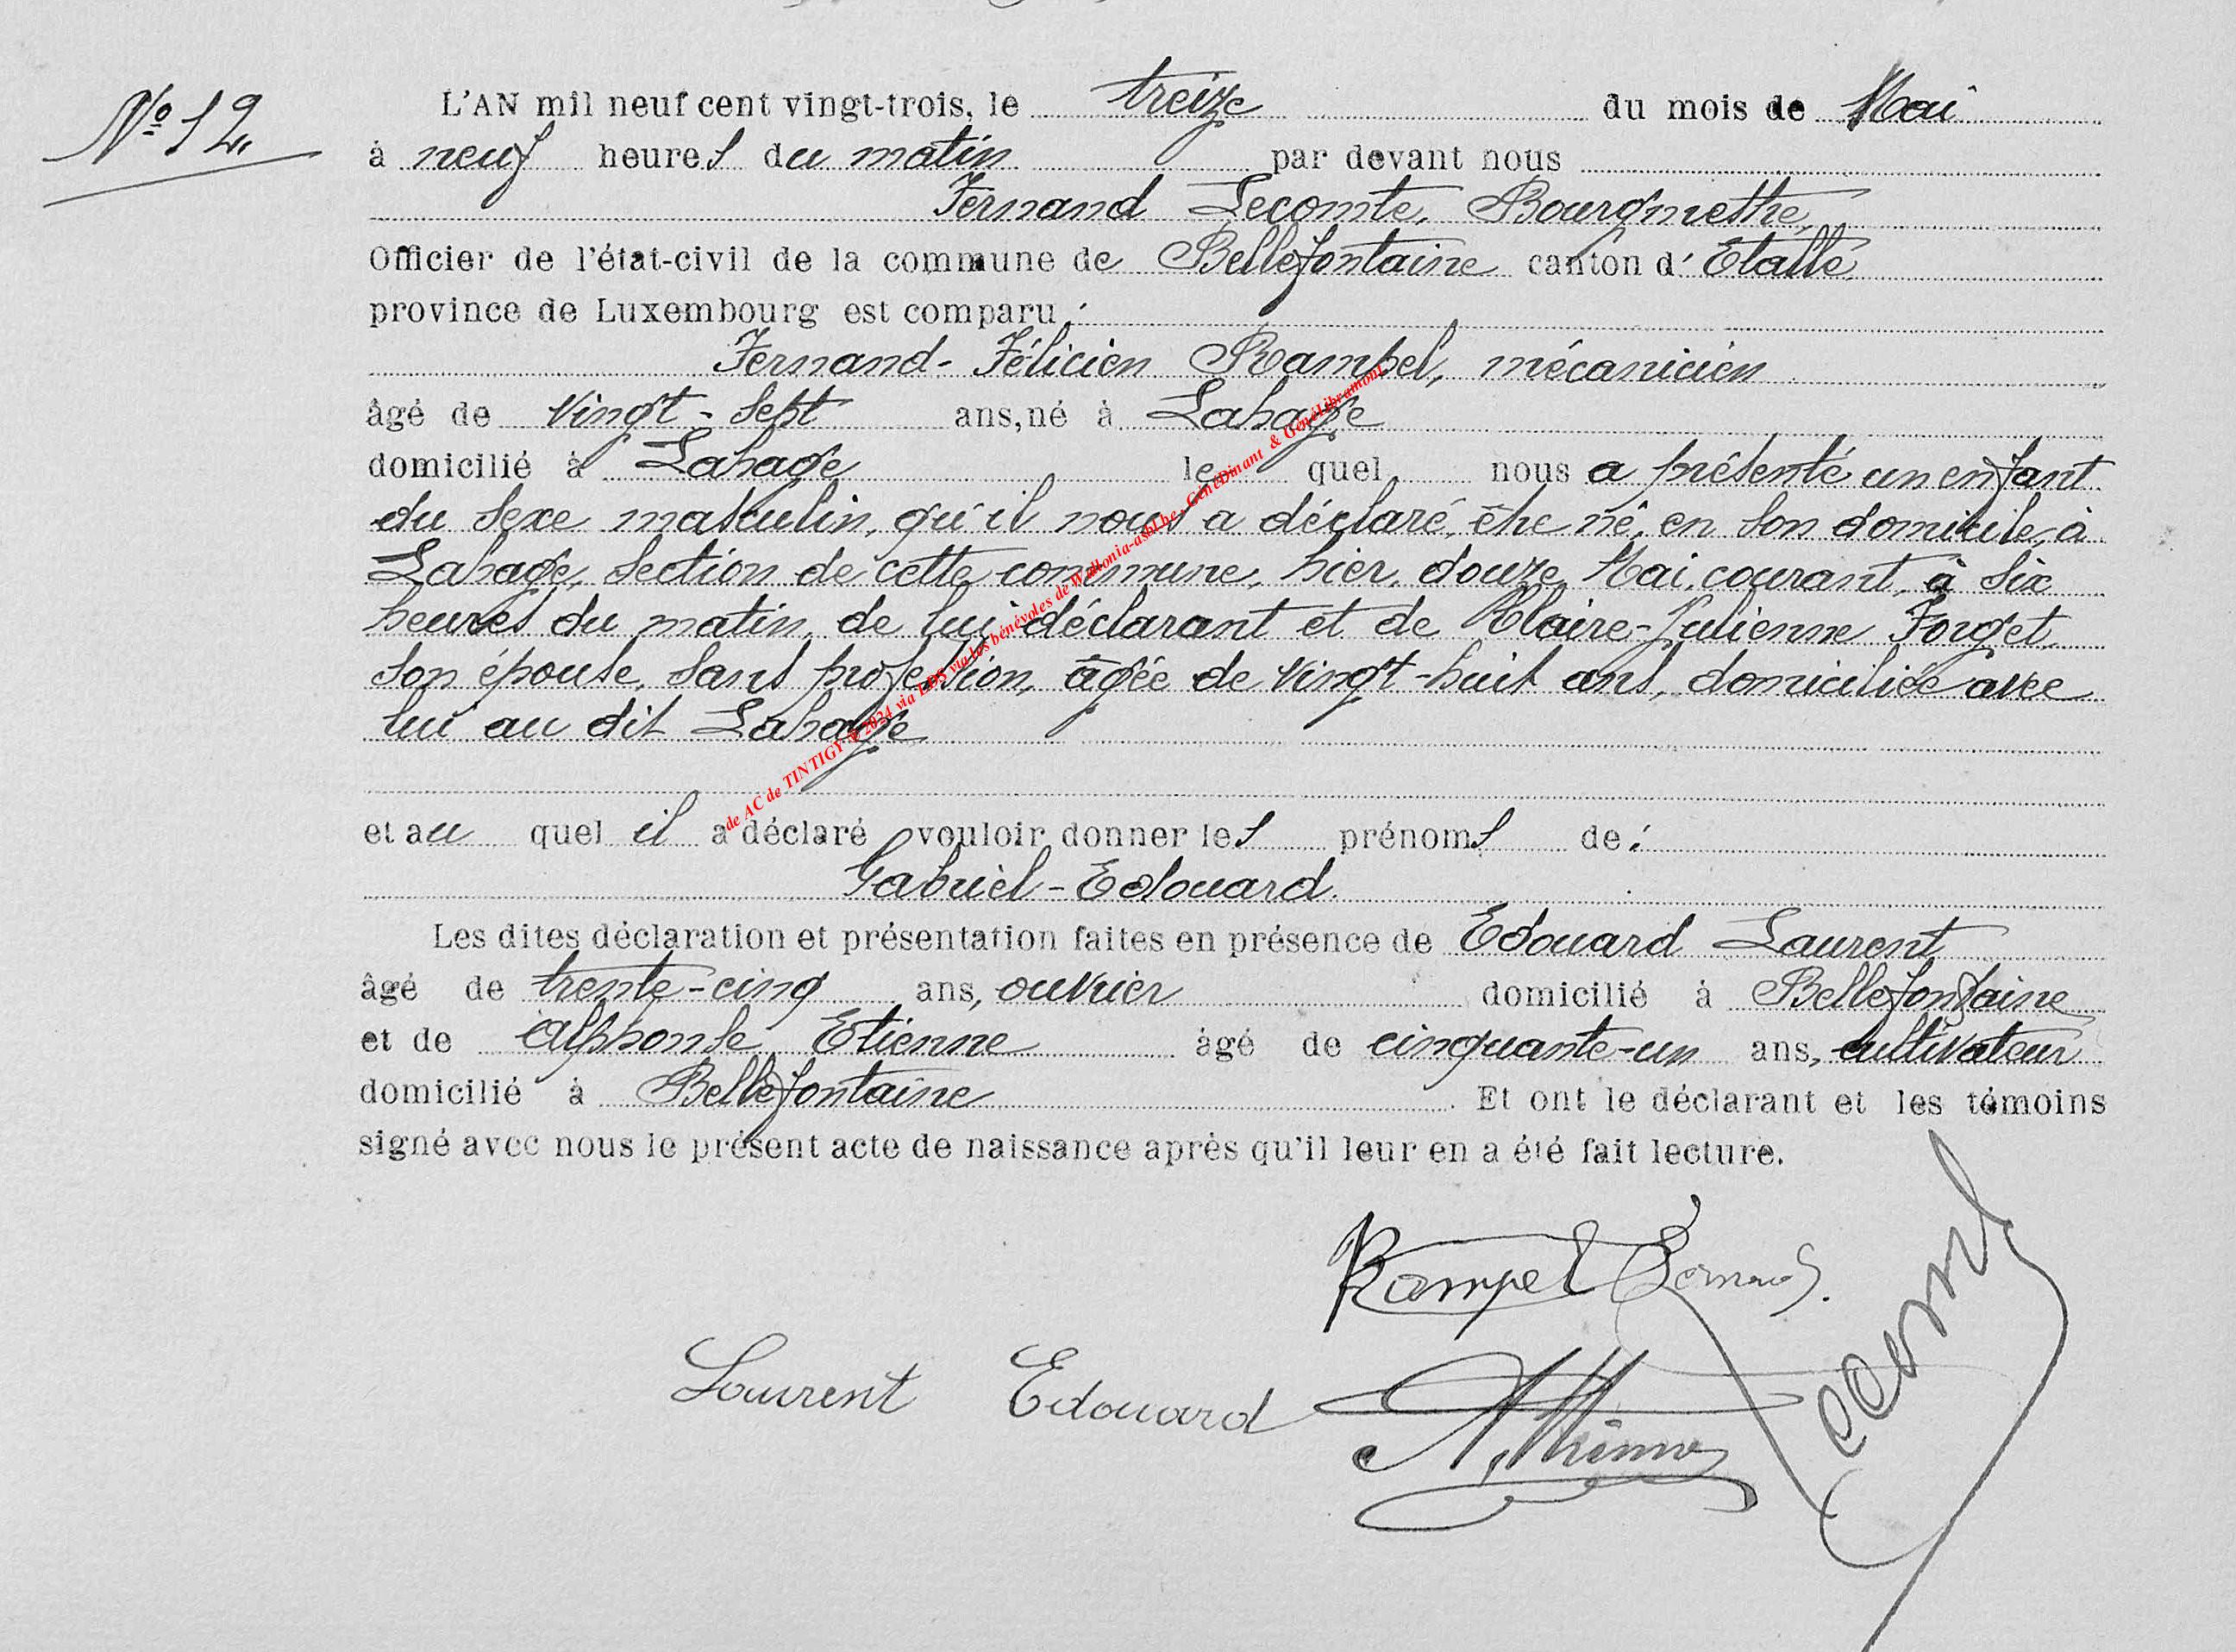 N° 12.
L'AN mil neuf cent vingt-trois, le treize du mois de Mai
à neuf heures du matin par devant nous
Fernand Lecomte, Bourgmestre,
Officier de l'état-civil de la commune de Bellefontaine canton d'Etalle
province de Luxembourg est comparu :
Fernand-Félicien Rampel, mécanicien
âgé de vingt-sept ans, né à Lahage
domicilié à Lahage lequel nous a présenté un enfant
du sexe masculin, qu'il nous a déclaré être né, en son domicile, à
Lahage, section de cette commune, hier, douze Mai, courant, à six
heures du matin, de lui déclarant et de Claire-Julienne Forget,
son épouse, sans profession, âgée de vingt-huit ans, domiciliée avec
lui au dit Lahage
et auquel il a déclaré vouloir donner les prénoms de :
Gabriel-Edouard.
Les dites déclaration et présentation faites en présence de Edouard Laurent
âgé de trente-cinq ans, ouvrier domicilié à Bellefontaine
et de Alphonse Etienne âgé de cinquante-un ans, cultivateur
domicilié à Bellefontaine. Et ont le déclarant et les témoins
signé avec nous le présent acte de naissance après qu'il leur en a été fait lecture.
Rampel Fernand.
Laurent Edouard
A. Etienne
Lecomte
de AC de TINTIGY © 2024 via LDS via les bénévoles de Wallonia-asbl.be, GénéDinant & GénéLibramont